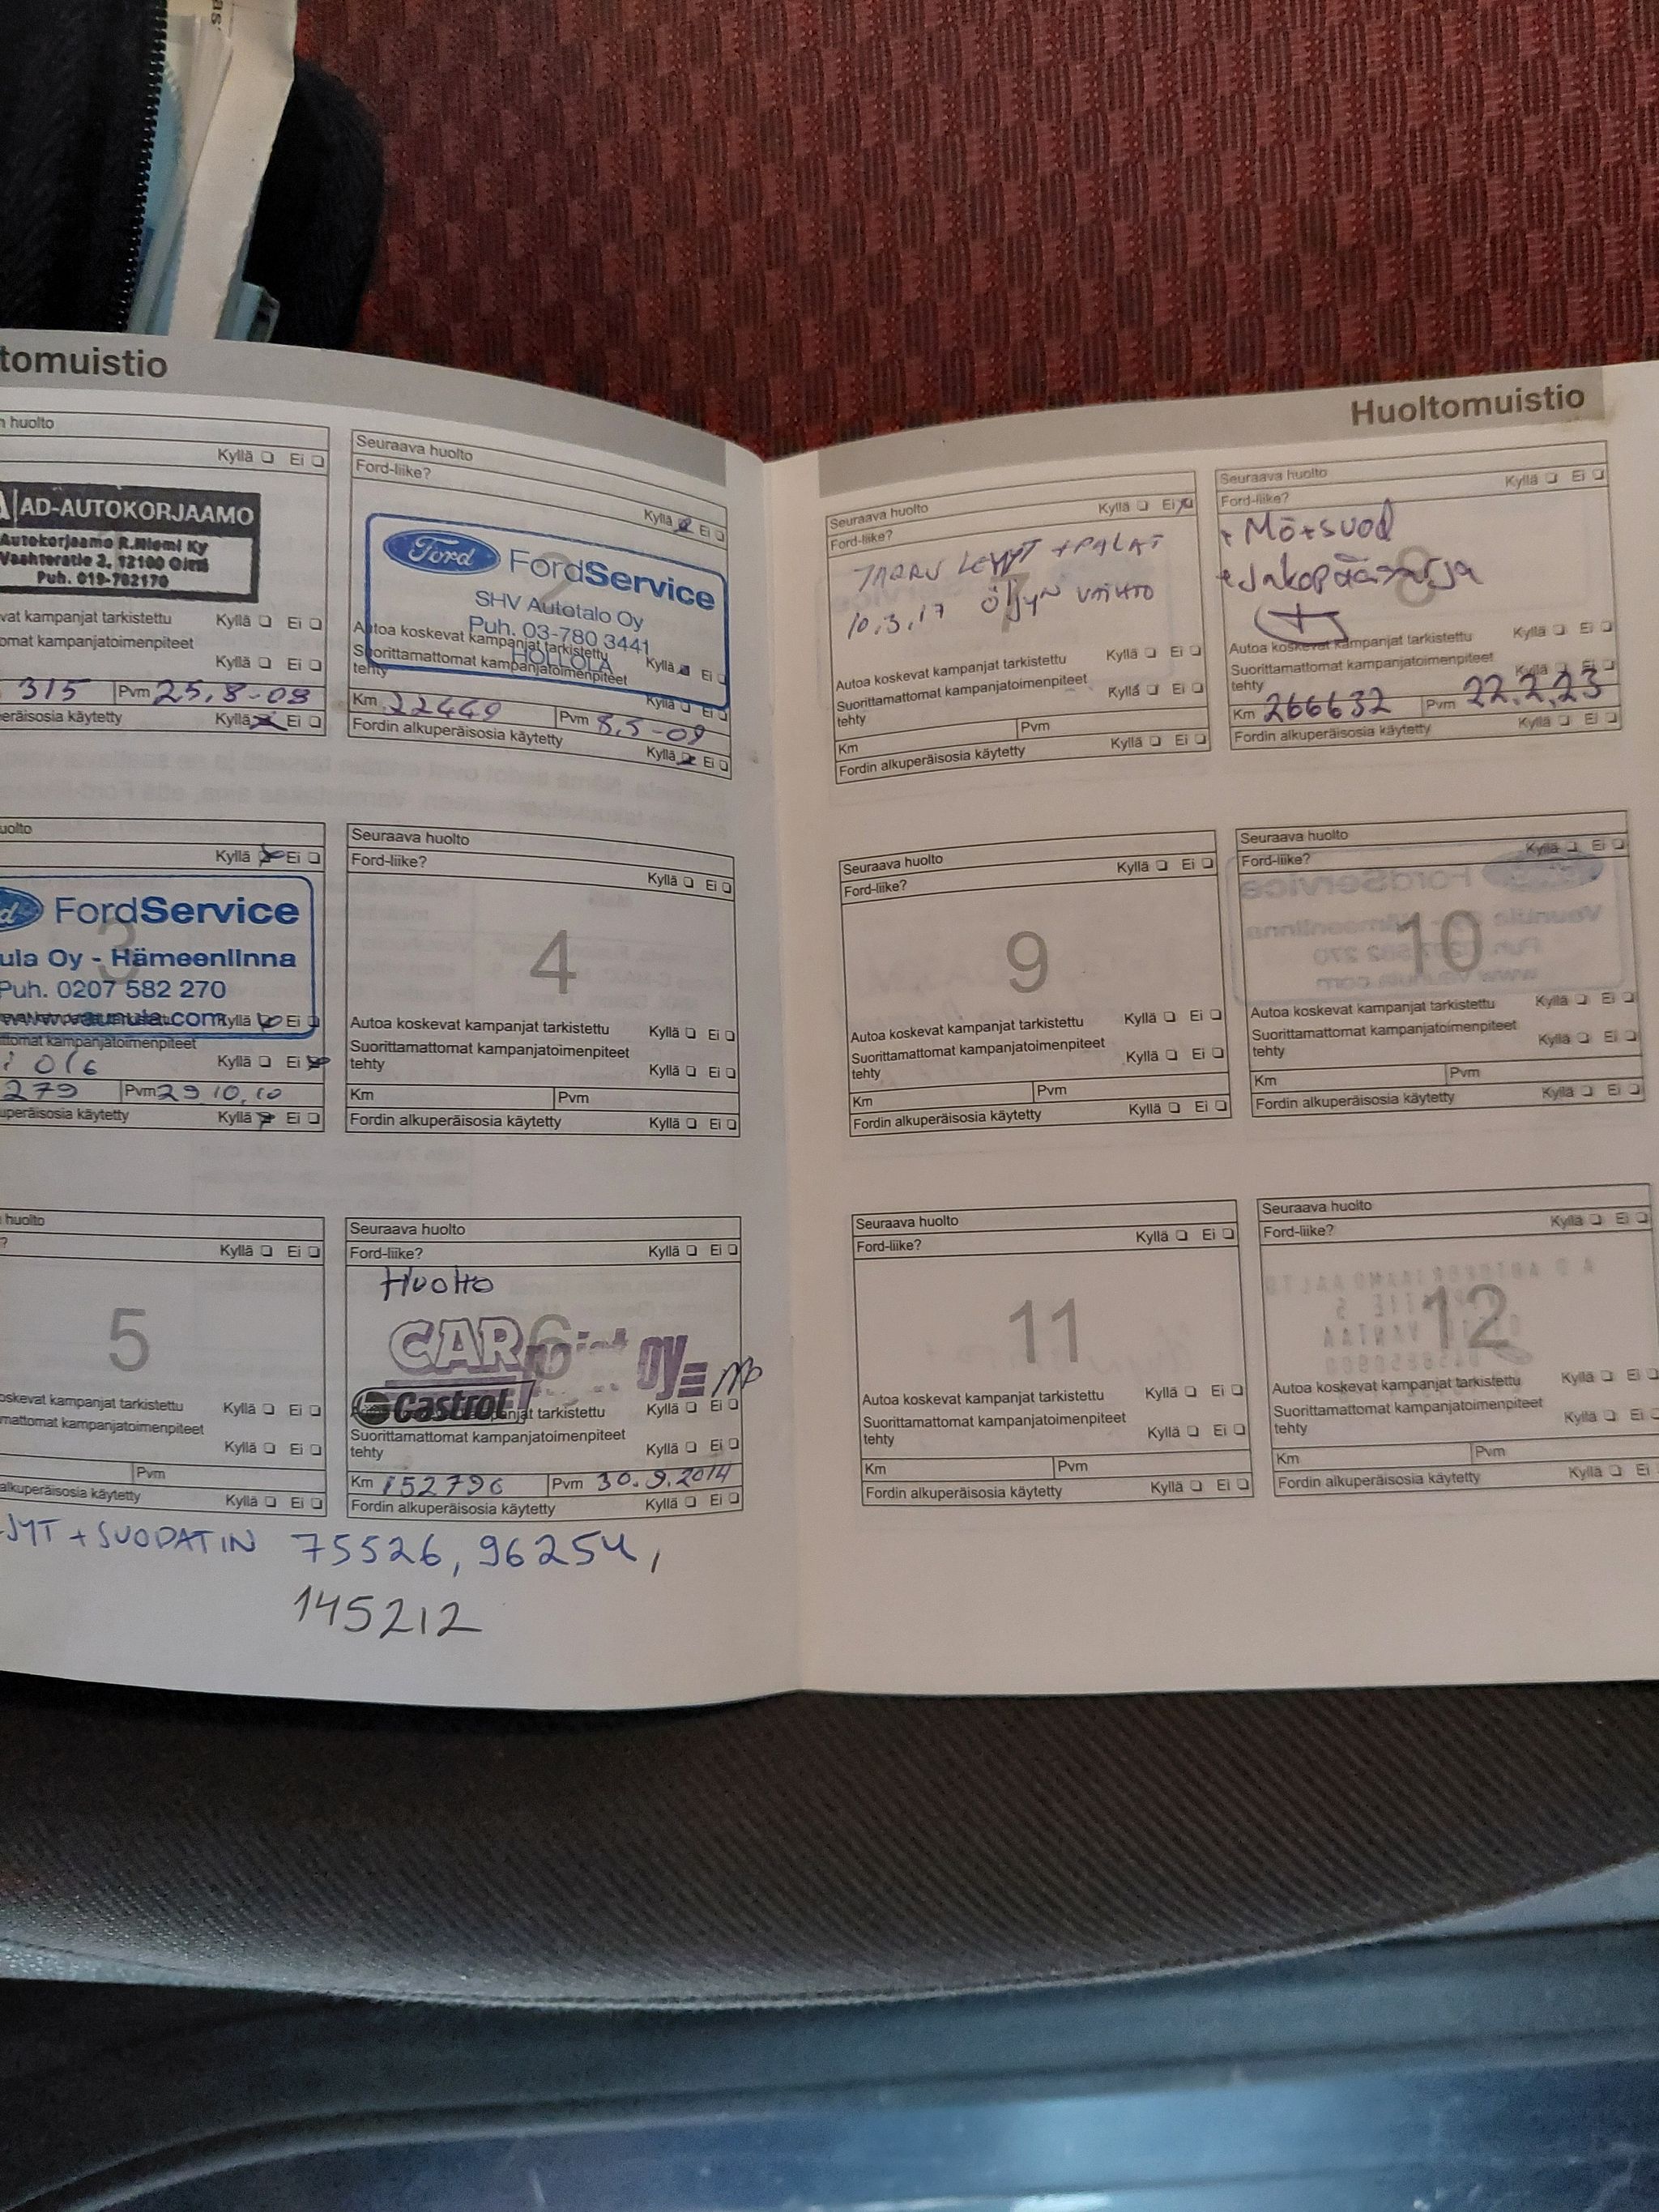 tomuistio
n huolto
Kyllä ❑ Ei ❑
AD-AUTOKORJAAMO
Autokorjaamo R.Niemi Ky
Vaahteratie 2, 12100 Oitti
Puh. 019-782170
vat kampanjat tarkistettu Kyllä ❑ Ei ❑
omat kampanjatoimenpiteet
Kyllä ❑ Ei ❑
315 Pvm 25,8-08
eräisosia käytetty Kyllä Ei ❑
Seuraava huolto
Ford-liike?
Kyllä Ei ❑
2
Ford
FordService
SHV Autotalo Oy
Puh. 03-780 3441
HOLLOLA
Autoa koskevat kampanjat tarkistettu
Kyllä Ei ❑
Suorittamattomat kampanjatoimenpiteet
tehty
Kyllä ❑ Ei ❑
Km 22449 Pvm 8,5-09
Fordin alkuperäisosia käytetty
Kyllä Ei ❑
uolto
Kyllä Ei ❑
3
FordService
ula Oy - Hämeenlinna
Puh. 0207 582 270
www.vaunula.com
Kyllä Ei ❑
ttomat kampanjatoimenpiteet
Kyllä ❑ Ei
279 Pvm 29 10,10
uperäisosia käytetty Kyllä Ei ❑
Seuraava huolto
Ford-liike?
Kyllä ❑ Ei ❑
4
Autoa koskevat kampanjat tarkistettu Kyllä ❑ Ei ❑
Suorittamattomat kampanjatoimenpiteet
tehty Kyllä ❑ Ei ❑
Km Pvm
Fordin alkuperäisosia käytetty Kyllä ❑ Ei ❑
huolto
?
Kyllä ❑ Ei ❑
5
oskevat kampanjat tarkistettu Kyllä ❑ Ei ❑
mattomat kampanjatoimenpiteet
Kyllä ❑ Ei ❑
Pvm
alkuperäisosia käytetty Kyllä ❑ Ei ❑
Seuraava huolto
Ford-liike? Kyllä ❑ Ei ❑
Huolto
6
CAR
oy
Castrol
panjat tarkistettu Kyllä ❑ Ei ❑
Suorittamattomat kampanjatoimenpiteet
tehty Kyllä ❑ Ei ❑
Km 152796 Pvm 30.9.2014
Fordin alkuperäisosia käytetty Kyllä ❑ Ei ❑
JYT + SUODATIN 75526, 96254,
145212
Huoltomuistio
Seuraava huolto
Ford-liike?
Kyllä ❑ Ei
7
JARRU LEVYT + PALAT
10.3.17 ÖljyN VAIHTO
Autoa koskevat kampanjat tarkistettu Kyllä ❑ Ei ❑
Suorittamattomat kampanjatoimenpiteet
tehty Kyllä ❑ Ei ❑
Km Pvm
Fordin alkuperäisosia käytetty Kyllä ❑ Ei ❑
Seuraava huolto
Ford-liike? Kyllä ❑ Ei ❑
8
+ Mö+suod
+ Jakopääsarja
Autoa koskevat kampanjat tarkistettu Kyllä ❑ Ei ❑
Suorittamattomat kampanjatoimenpiteet
tehty Kyllä ❑ Ei ❑
Km 266632 Pvm 22.2.23
Fordin alkuperäisosia käytetty Kyllä ❑ Ei ❑
Seuraava huolto
Ford-liike? Kyllä ❑ Ei ❑
9
Autoa koskevat kampanjat tarkistettu Kyllä ❑ Ei ❑
Suorittamattomat kampanjatoimenpiteet
tehty Kyllä ❑ Ei ❑
Km Pvm
Fordin alkuperäisosia käytetty Kyllä ❑ Ei ❑
Seuraava huolto
Ford-liike? Kyllä ❑ Ei ❑
10
Autoa koskevat kampanjat tarkistettu Kyllä ❑ Ei ❑
Suorittamattomat kampanjatoimenpiteet
tehty Kyllä ❑ Ei ❑
Km Pvm
Fordin alkuperäisosia käytetty Kyllä ❑ Ei ❑
Seuraava huolto
Ford-liike? Kyllä ❑ Ei ❑
11
Autoa koskevat kampanjat tarkistettu Kyllä ❑ Ei ❑
Suorittamattomat kampanjatoimenpiteet
tehty Kyllä ❑ Ei ❑
Km Pvm
Fordin alkuperäisosia käytetty Kyllä ❑ Ei ❑
Seuraava huolto
Ford-liike? Kyllä ❑ Ei ❑
12
Autoa koskevat kampanjat tarkistettu Kyllä ❑ Ei ❑
Suorittamattomat kampanjatoimenpiteet
tehty Kyllä ❑ Ei ❑
Km Pvm
Fordin alkuperäisosia käytetty Kyllä ❑ Ei